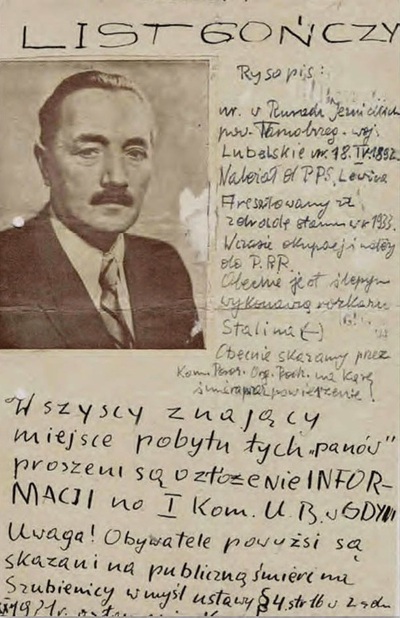 LIST GOŃCZY
Rysopis:
ur. w Rurach Jezuickich
pow. Tarnobrzeg. woj.
Lubelskie ur. 18. IV. 1892.
Należał d PPS, Lewica
Aresztowany za
zdradę stanu w r 1933.
W czasie okupacji należy
do P.P.R.
Obecnie jest ślepym
wykonawcą rozkazu
Stalina (-)
Obecnie skazany przez
Kom. Org. na karę
śmierci przez powieszenie!
Wszyscy znający
miejsce pobytu tych "panów"
proszeni są o złożenie INFOR-
MACJI no I Kom. U. B. w GDYNI
Uwaga! Obywatele powyżsi są
skazani na publiczną śmierć na
Szubienicy w myśl ustawy § 4. str 16 v z dn
1921 r.